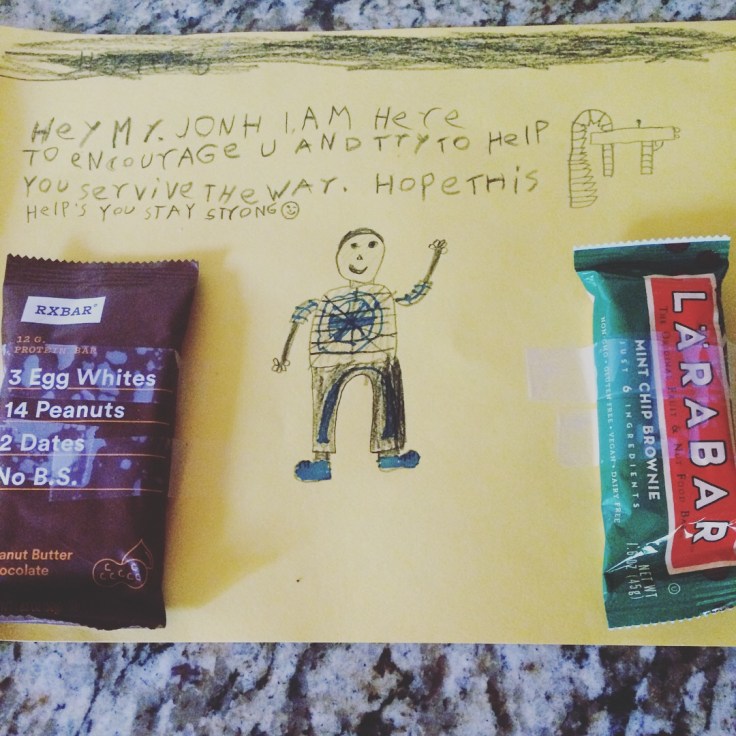 Hey My. JONH I AM Here
TO eNCOURAGe U AND TryTO HeLP
YOU SerViVe THe WAY. HOPeTHiS
HelP's YOU STAY STRONG
RXBAR
12 G.
PROTEIN BAR
3 Egg Whites
14 Peanuts
2 Dates
No B.S.
anut Butter
ocolate
LÄRABAR
THE ORIGINAL FRUIT & NUT FOOD BAR
MINT CHIP BROWNIE
JUST 6 INGREDIENTS
NON GMO • GLUTEN FREE • VEGAN • DAIRY FREE
NET WT
1.6 OZ (45g)
U